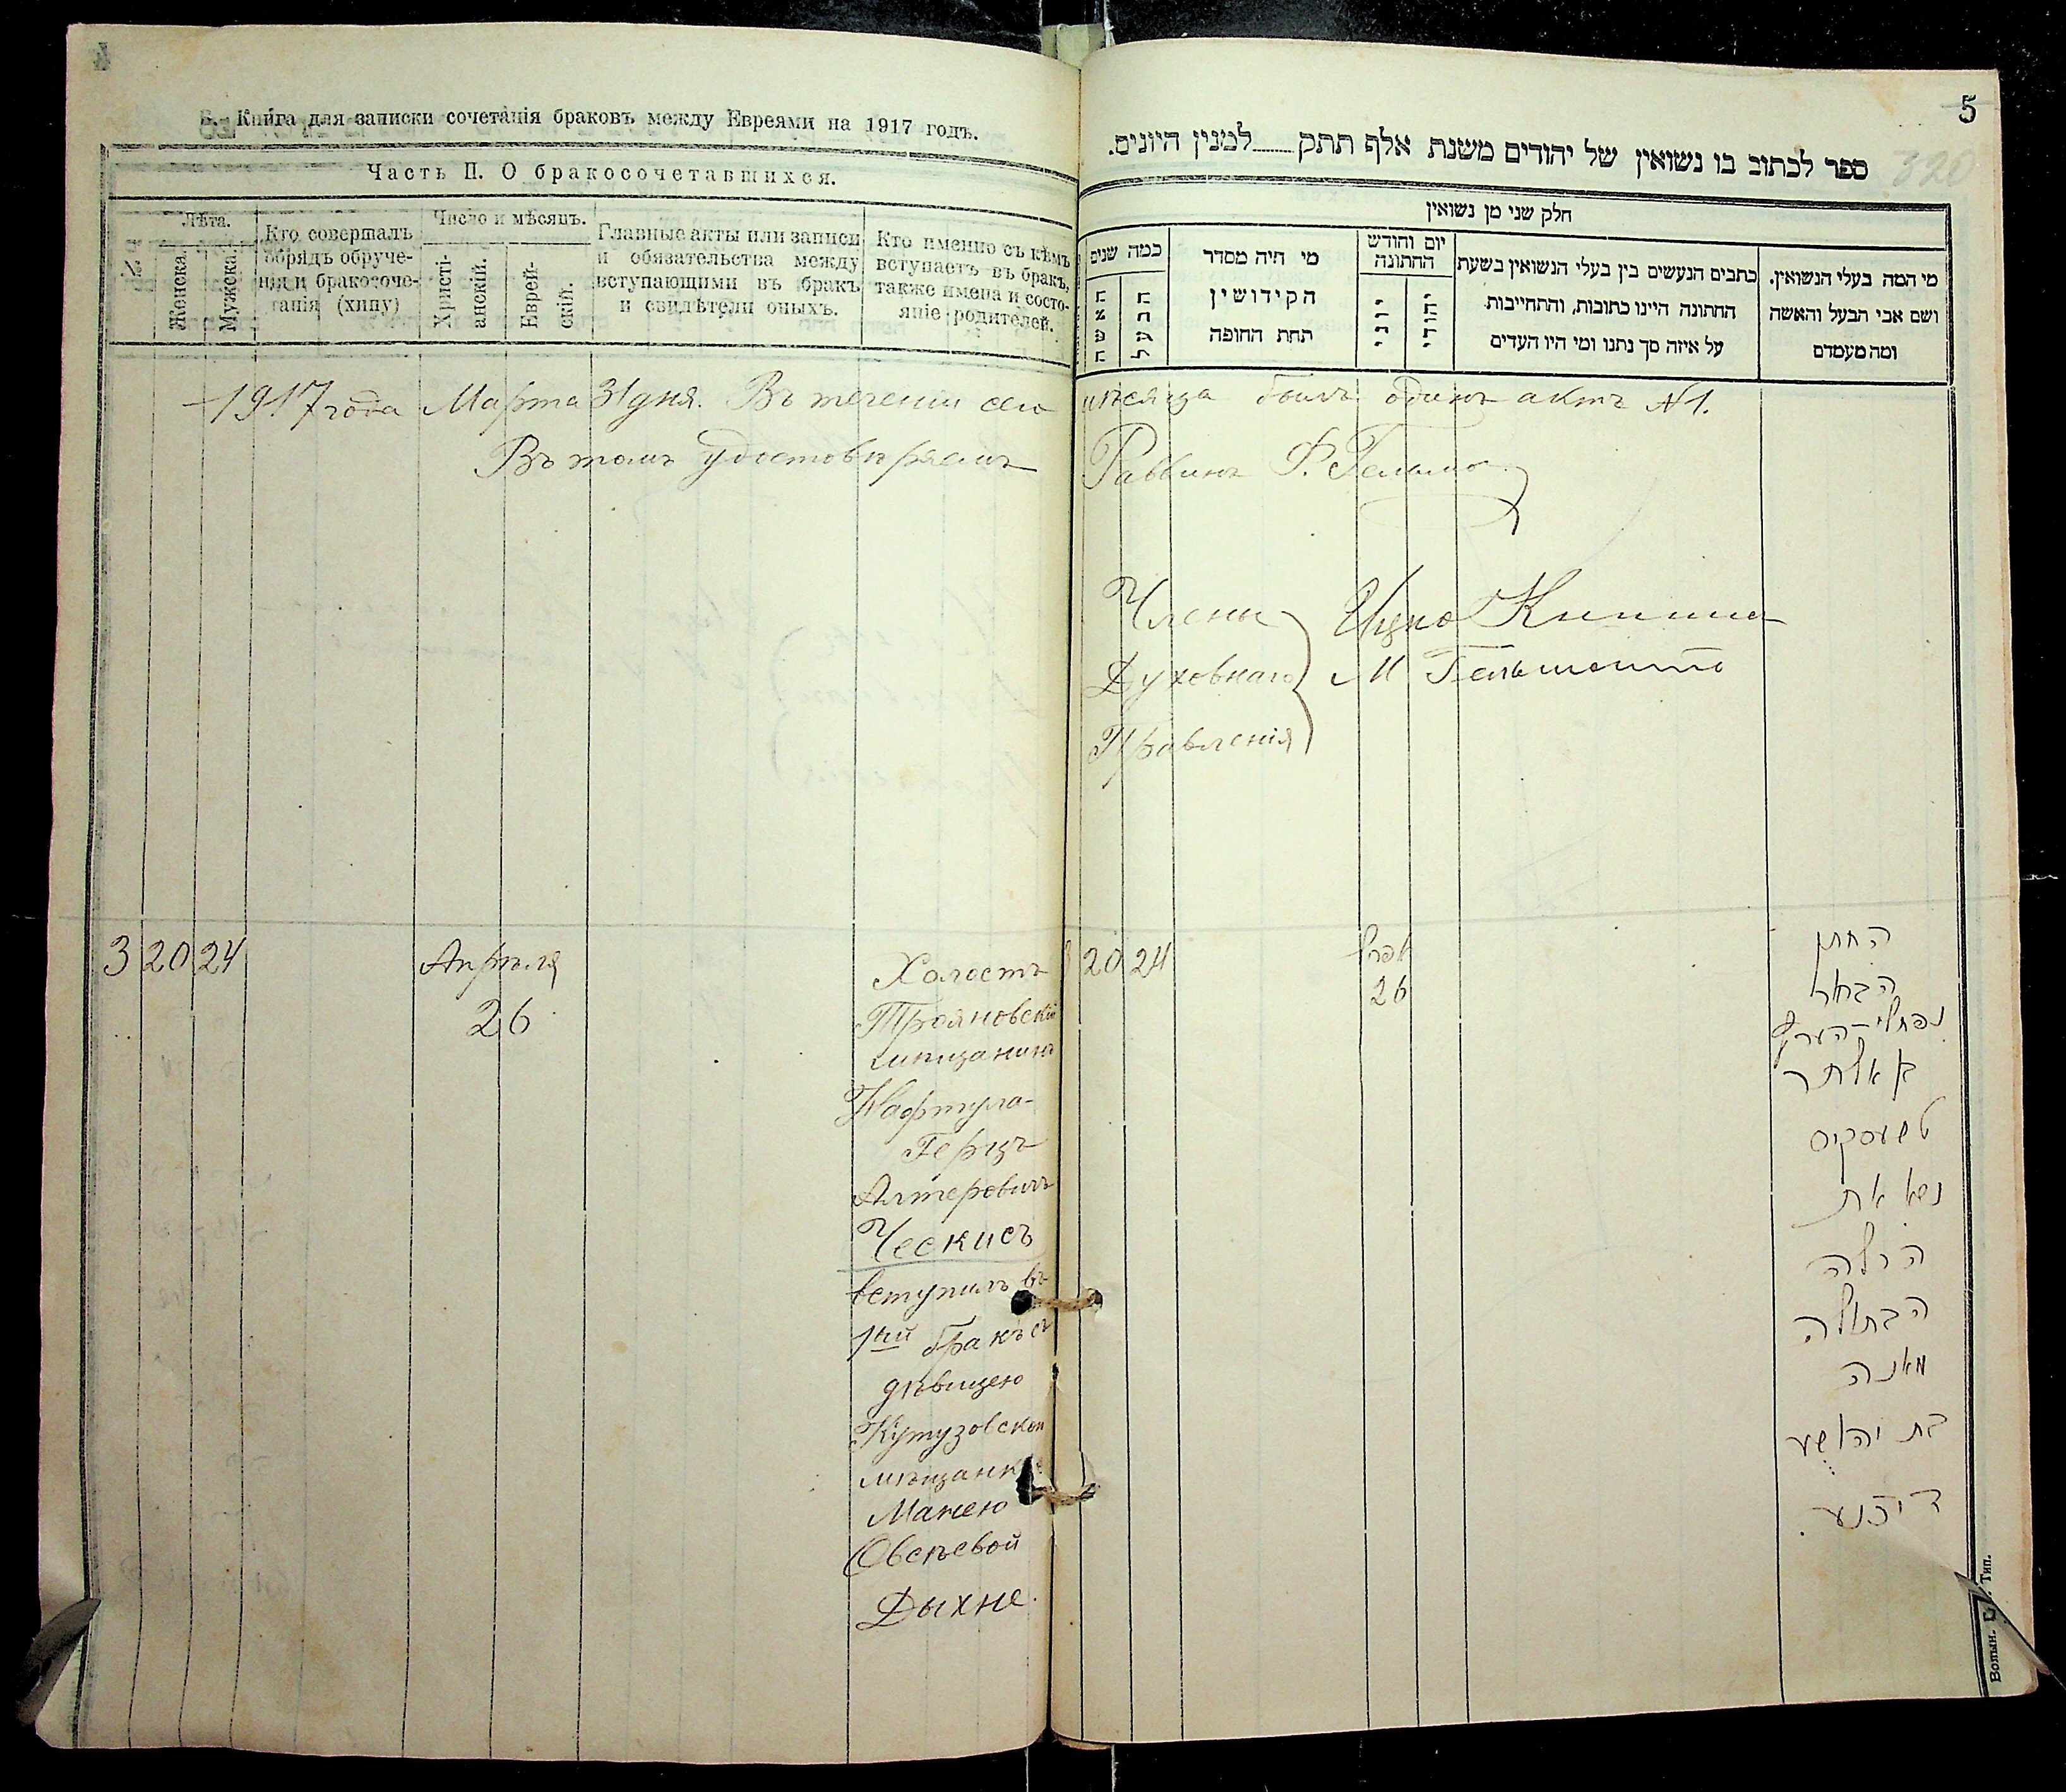 Б. Книга для записки сочетанія браковъ между Евреями на 1917 годъ.
Часть II. О бракосочетавшихся.
№
Лѣта.
Женска.
Мужска.
Кто совершалъ
обрядъ обруче-
нія и бракосоче-
танія (хипу)
Число и мѣсяцъ.
Христі-
анскій.
Еврей-
скій.
Главные акты или записи
и обязательства между
вступающими въ бракъ
и свидѣтели оныхъ.
Кто именно съ кѣмъ
вступаетъ въ бракъ,
также имена и состо-
яніе родителей.
1917 года Марта 31 дня. Въ теченіи сего
Въ томъ удостовѣряемъ
3 20 24
Апрѣля
26
Холостъ
Трояновскій
мѣщанинъ
Нафтула-
Герцъ
Алтеровичъ
Ческисъ
вступилъ въ
1ый бракъ съ
дѣвицею
Кутузовской
мѣщанкой
Манею
Овсѣевой
Дыхне.
5
320
ספר לכתוב בו נשואין של יהודים משנת אלף תתק למנין היונים.
חלק שני מן נשואין
כמה שנים
האשה
הבעל
מי היה מסדר
הקידושין
תחת החופה
יום וחודש
החתונה
יוני
יהודי
כתבים הנעשים בין בעלי הנשואין בשעת
החתונה היינו כתובות, והתחייבות
על איזה סך נתנו ומי היו העדים
מי המה בעלי הנשואין.
ושם אבי הבעל והאשה
ומה מעמדם
мѣсяца былъ одинъ актъ №1.
Раввинъ Ф.
Члены
Духовнаго
Правленія
М
20 24
אפריל
26
החתן
הבחור
נפתלי-הערץ
ב אלתר
טשעסקיס
נשא את
הכלה
הבתולה
מאניה
בת יהושע
דיכנע.
Волын. Г. Тип.